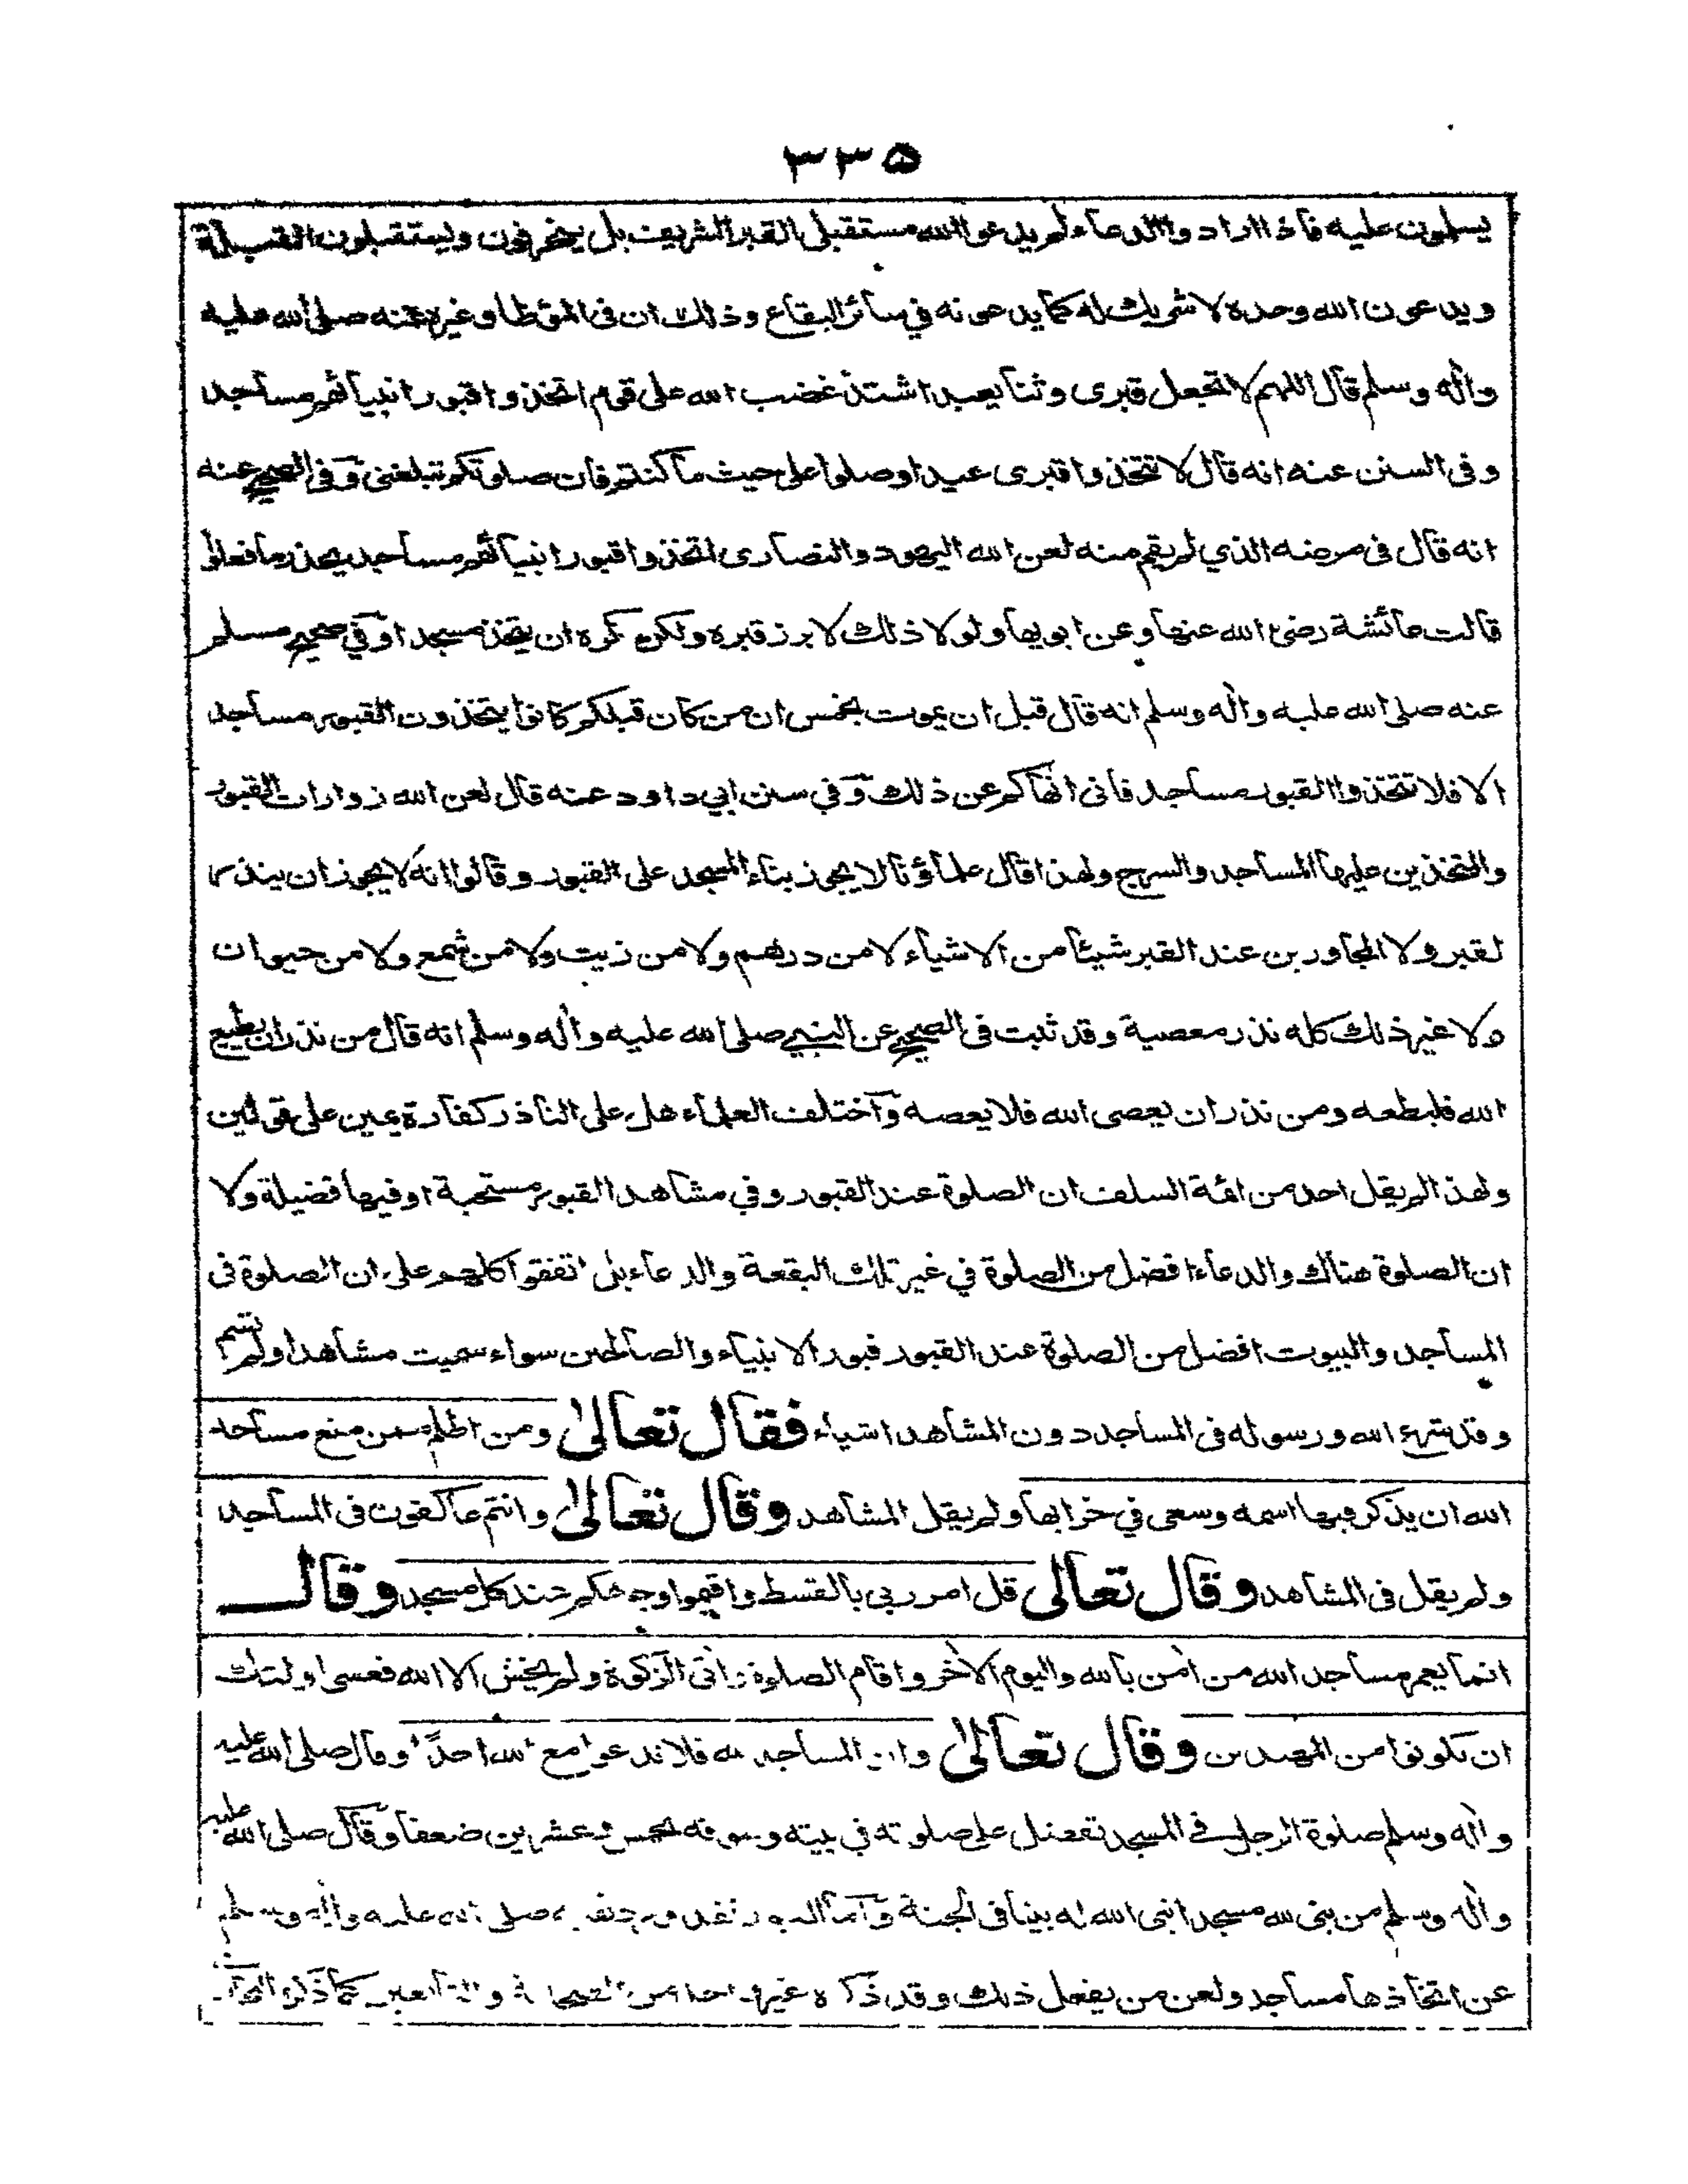 ٣٣٥
يسلمون عليه فاذا ارادوا الدعاء لم يدعوا الله مستقبلى القبر الشريف بل ينحرفون ويستقبلون القبلة
ويدعون الله وحده لا شريك له كما يدعونه في سائر البقاع وذلك ان فى المؤطا وغيره عنه صلى الله عليه
واٰله وسلم قال اللهم لا تجعل قبرى وثنا يعبد اشتد غضب الله على قوم اتخذوا قبور انبيائهم مساجد
وفى السنن عنه انه قال لا تتخذوا قبرى عيدا وصلوا على حيث ما كنتم فان صلوتكم تبلغنى وفى الصحيح عنه
انه قال فى مرضه الذي لم يقم منه لعن الله اليهود والنصارى اتخذوا قبور انبيائهم مساجد يحذر ما فعلوا
قالت عائشة رضى الله عنها وعن ابويها ولولا ذلك لابرز قبره ولكن كره ان يتخذ مسجدا وفي صحيح مسلم
عنه صلى الله عليه واٰله وسلم انه قال قبل ان يموت بخمس ان من كان قبلكم كانوا يتخذون القبور مساجد
الا فلا تتخذوا القبور مساجد فانى انهاكم عن ذلك وفي سنن ابي داود عنه قال لعن الله زوارات القبور
والمتخذين عليها المساجد والسرج ولهذا قال علماؤنا لا يجوز بناء المسجد على القبور وقالوا انه لا يجوز ان ينذر
لقبر ولا المجاورين عند القبر شيئا من الاشياء لا من درهم ولا من زيت ولا من شمع ولا من حيوان
ولا غير ذلك كله نذر معصية وقد ثبت فى الصحيح عن النبي صلى الله عليه واٰله وسلم انه قال من نذر ان يطيع
الله فليطعه ومن نذر ان يعصى الله فلا يعصه واختلف العلماء هل على الناذر كفارة يمين على قولين
ولهذا لم يقل احد من ائمة السلف ان الصلوة عند القبور وفي مشاهد القبور مستحبة او فيها فضيلة ولا
ان الصلوة هناك والدعاء افضل من الصلوة في غير تلك البقعة والدعاء بل اتفقوا كلهم على ان الصلوة فى
المساجد والبيوت افضل من الصلوة عند القبور قبور الانبياء والصالحين سواء سميت مشاهد او لم تسم
وقد شرع الله ورسوله فى المساجد دون المشاهد اشياء فقال تعالىٰ ومن اظلم ممن منع مساجد
الله ان يذكر فيها اسمه وسعى في خرابها ولم يقل المشاهد وقال تعالىٰ وانتم عاكفون فى المساجد
ولم يقل فى المشاهد وقال تعالى قل امر ربى بالقسط واقيموا وجوهكم عند كل مسجد وقال
انما يعمر مساجد الله من اٰمن بالله واليوم الاٰخر واقام الصلوة واٰتى الزكوة ولم يخش الا الله فعسى اولئك
ان يكونوا من المهتدين وقال تعالىٰ وان المساجد لله فلا تدعوا مع الله احدًا وقال صلى الله عليه
واٰله وسلم صلوة الرجل فے المسجد تفضل على صلوته في بيته وسوقه بخمس وعشرين ضعفا وقال صلى الله عليه
واٰله وسلم من بنى لله مسجدا بنى الله له بيتا فى الجنة واما القبور فقد ورد نهيه صلى الله عليه واٰله وسلم
عن اتخاذها مساجد ولعن من يفعل ذلك وقد ذكره غير واحد من الصحابة والتابعين كما ذكره